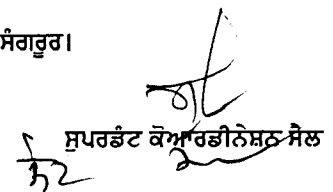 ਸੰਗਰੂਰ।
ਸੁਪਰਡੰਟ ਕੋਆਰਡੀਨੇਸ਼ਨ ਸੈਲ